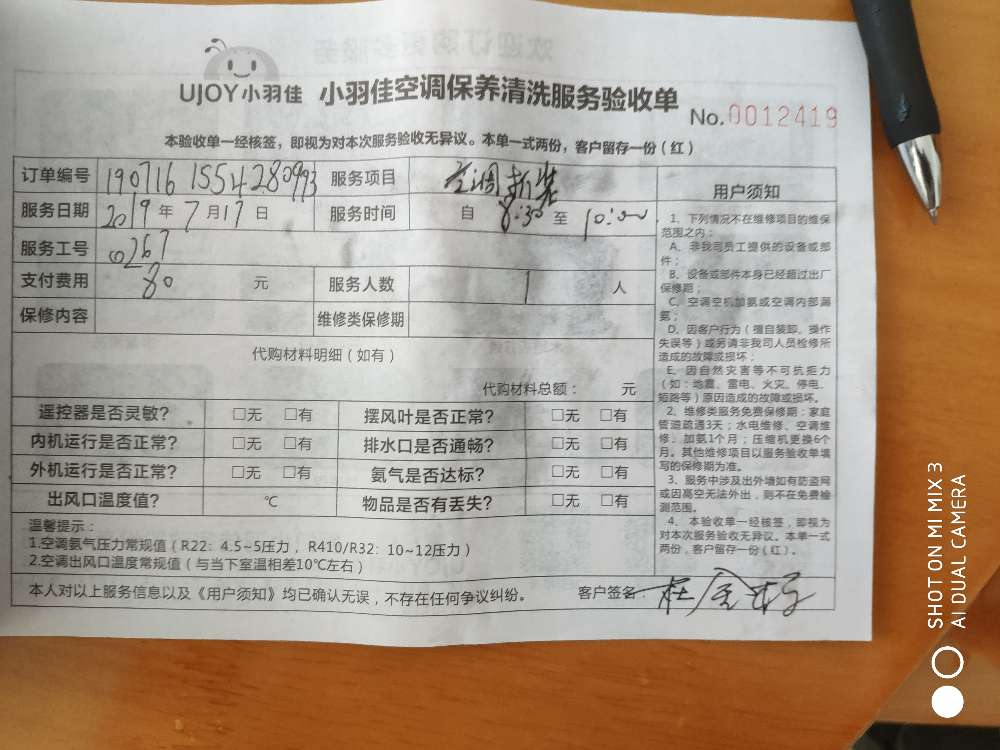 UJOY小羽佳 小羽佳空调保养清洗服务验收单
No.0012419
本验收单一经核签，即视为对本次服务验收无异议。本单一式两份，客户留存一份（红）
订单编号 190716 1554280993 服务项目 空调拆装
服务日期 2019 年 7 月 17 日 服务时间 自 8:30 至 10:00
服务工号 0267
支付费用 80 元 服务人数 1 人
保修内容 维修类保修期
代购材料明细（如有）
代购材料总额： 元
遥控器是否灵敏？ □无 □有 摆风叶是否正常？ □无 □有
内机运行是否正常？ □无 □有 排水口是否通畅？ □无 □有
外机运行是否正常？ □无 □有 氨气是否达标？ □无 □有
出风口温度值？ ℃ 物品是否有丢失？ □无 □有
温馨提示：
1.空调氨气压力常规值（R22：4.5~5压力，R410/R32：10~12压力）
2.空调出风口温度常规值（与当下室温相差10℃左右）
本人对以上服务信息以及《用户须知》均已确认无误，不存在任何争议纠纷。 客户签名
用户须知
1、下列情况不在维修项目的维保
范围之内：
A、非我司员工提供的设备或部
件；
B、设备或部件本身已经超过出厂
保修期；
C、空调空机加氨或空调内部漏
氨；
D、因客户行为（擅自装卸、操作
失误等）或另请非我司人员检修所
造成的故障或损坏；
E、因自然灾害等不可抗拒力
（如：地震、雷电、火灾、停电、
短路等）原因造成的故障或损坏。
2、维修类服务免费保修期：家庭
管道疏通3天；水电维修、空调维
修、加氨1个月；压缩机更换6个
月。其他维修项目以服务验收单填
写的保修期为准。
3、服务中涉及出外墙如有防盗网
或因高空无法外出，则不在免费检
测范围。
4、本验收单一经核签，即视为
对本次服务验收无异议。本单一式
两份，客户留存一份（红）。
SHOT ON MI MIX 3
AI DUAL CAMERA